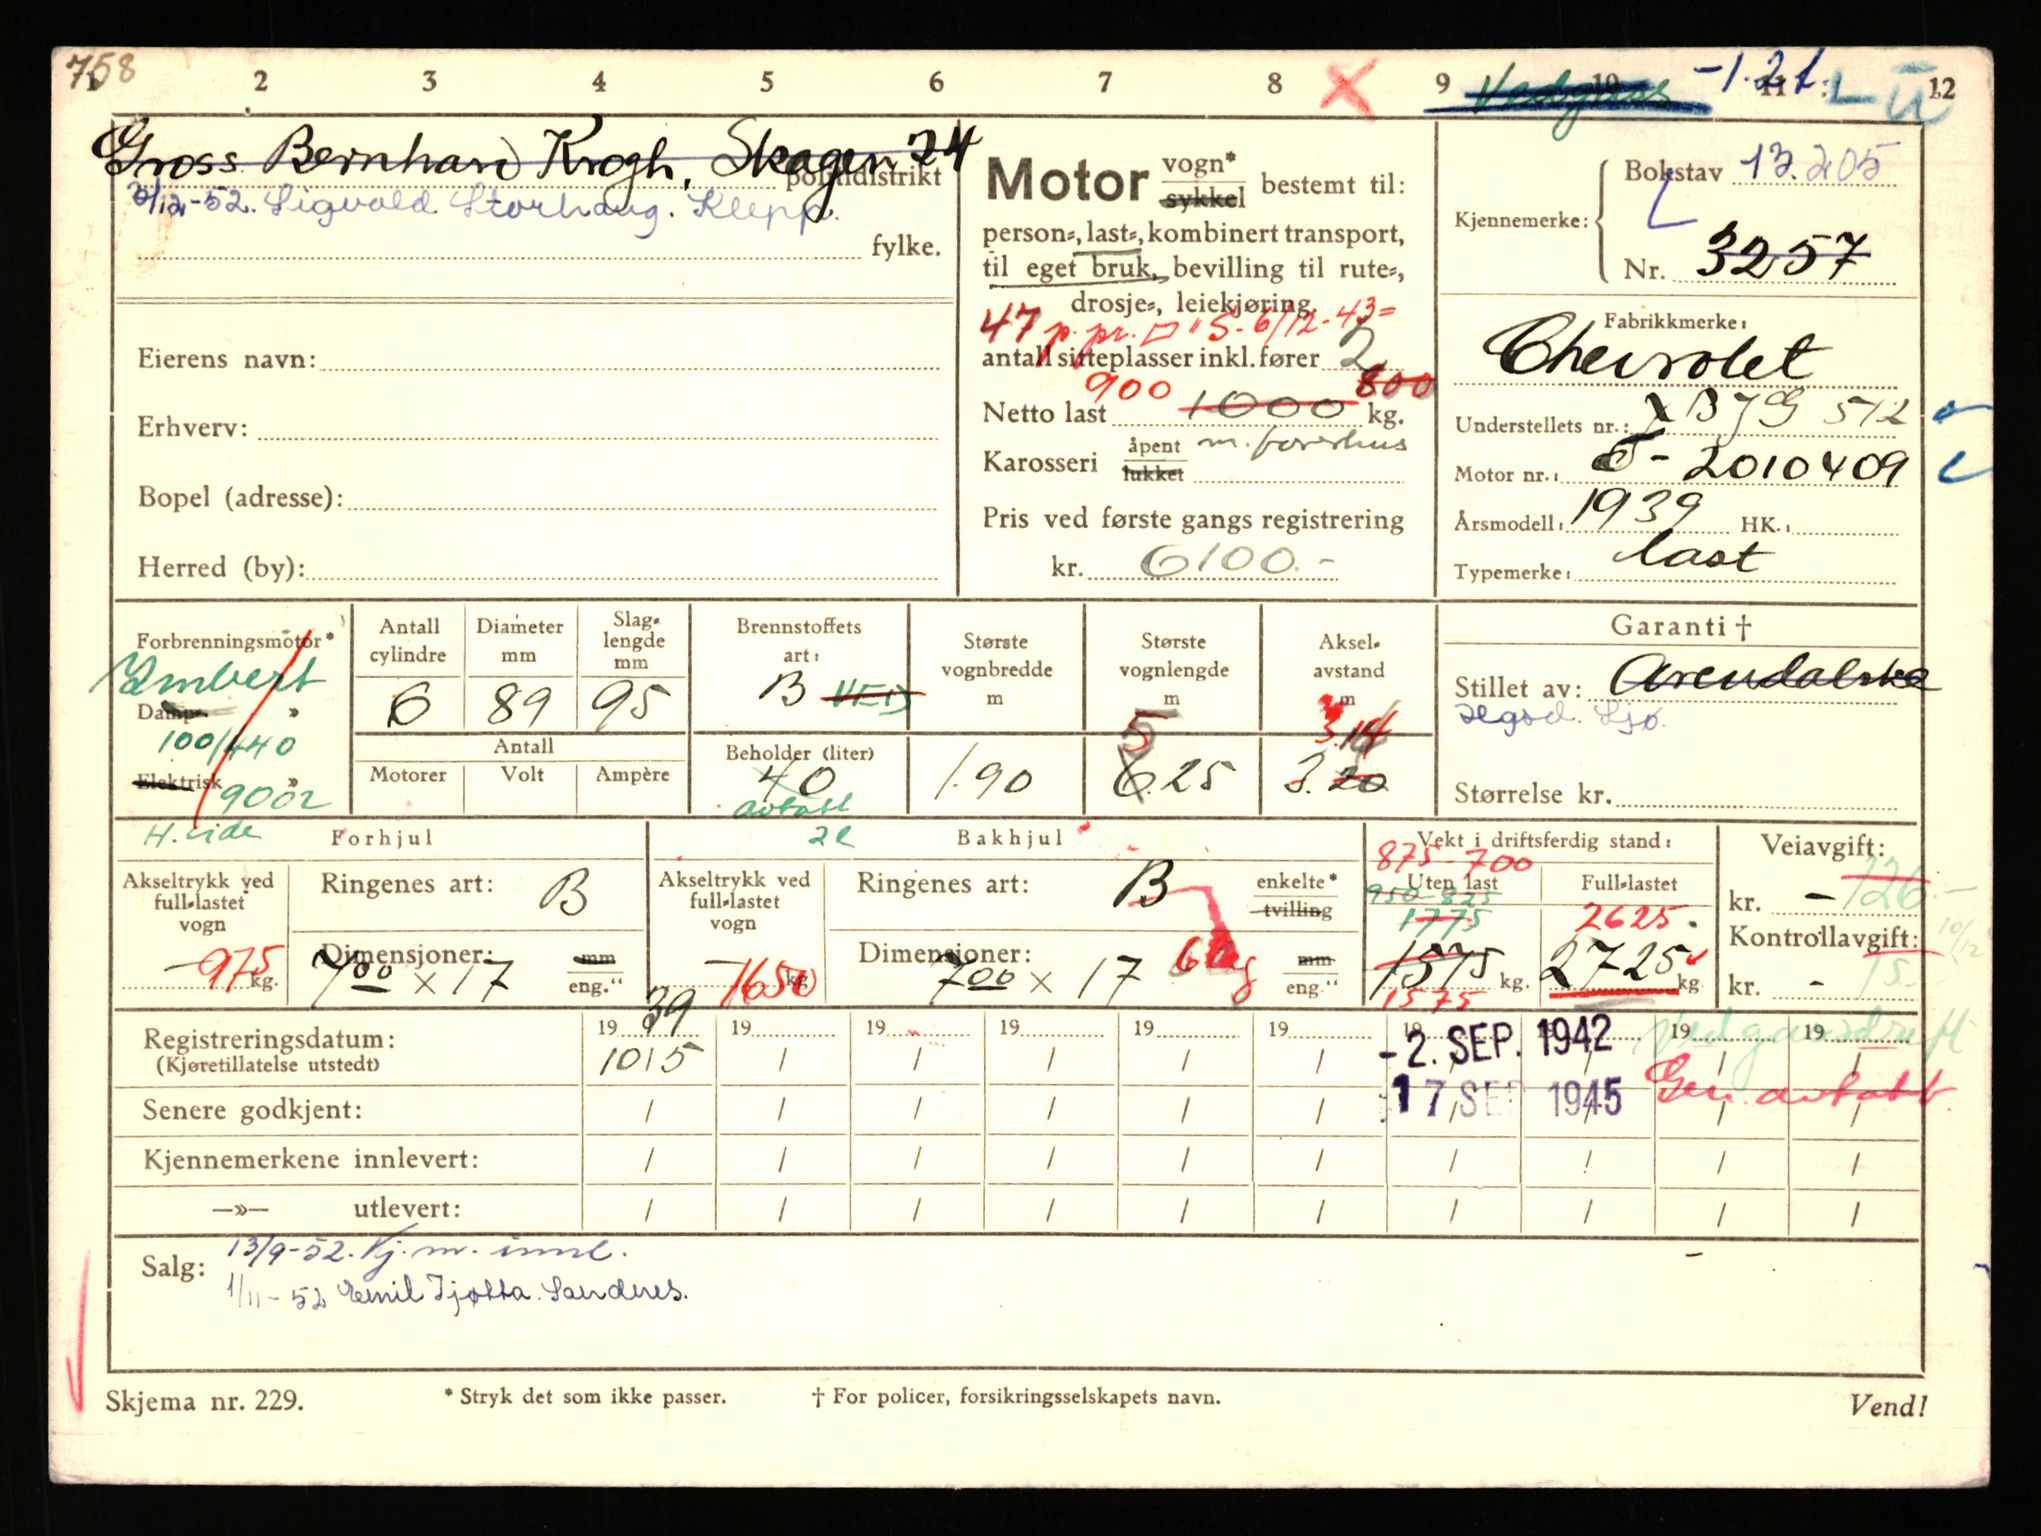 758
2 3 4 5 6 7 8 9 10 11 12
Vedgass -1.2t. L ū
Gross. Bernhard Krogh, Skagen 24
politidistrikt
3/12-52. Sigvald Storhaug. Klepp.
fylke.
Eierens navn:
Erhverv:
Bopel (adresse):
Herred (by):
Motor vogn* sykkel bestemt til:
person=, last=, kombinert transport,
til eget bruk, bevilling til rute=,
drosje=, leiekjøring,
47 p. pr. "S. 6/12-43=
antall sitteplasser inkl. fører 2
900 800
Netto last 1000 kg.
Karosseri åpent lukket m. førerhus
Pris ved første gangs registrering
kr. 6100.-
Kjennemerke:
Bokstav 13.205
L
Nr. 3257
Fabrikkmerke:
Chevrolet
Understellets nr.: XBJG 512
Motor nr.: - 2010409
Årsmodell: 1939 HK.:
Typemerke: last
Garanti †
Stillet av: Arendalske
Stillet av: Ægsd. Sjø.
Størrelse kr.
Forbrenningsmotor*
Imbert
Damp= »
100/440
Elektrisk »
H. side
Antall cylindre
6
Diameter mm
89
Slag=lengde mm
95
Antall
Motorer Volt Ampère
Brennstoffets art:
B VED
Beholder (liter)
40
avtatt
Største vognbredde m
1.90
Største vognlengde m
5
6.25
Aksel=avstand m
3.14
3.20
Forhjul
Akseltrykk ved full=lastet vogn
- 975 kg.
Ringenes art: B
Dimensjoner: mm
7⁰⁰ x 17 eng."
Bakhjul
Akseltrykk ved full=lastet vogn
- 1650 kg
Ringenes art: B enkelte* tvilling
Dimensjoner: mm
7⁰⁰ x 17 eng."
Vekt i driftsferdig stand:
875-700
Uten last Full=lastet
950-825
1775 2625.
1575 kg. 2725 kg
1575
Veiavgift:
kr. - 126.-
10/12
Kontrollavgift:
kr. - 15.-
39
19 19 19 19 19 19 19 19 19 19
Registreringsdatum:
(Kjøretillatelse utstedt)
10/5
-2. SEP. 1942
Vedgassdrift
17 SEP 1945
Gen. avtatt.
Senere godkjent:
Kjennemerkene innlevert:
—»— utlevert:
Salg: 13/9-52. Kj. m. innl.
1/11-52 Emil Tjøtta. Sandnes.
Skjema nr. 229.
* Stryk det som ikke passer.
† For policer, forsikringsselskapets navn.
Vend!